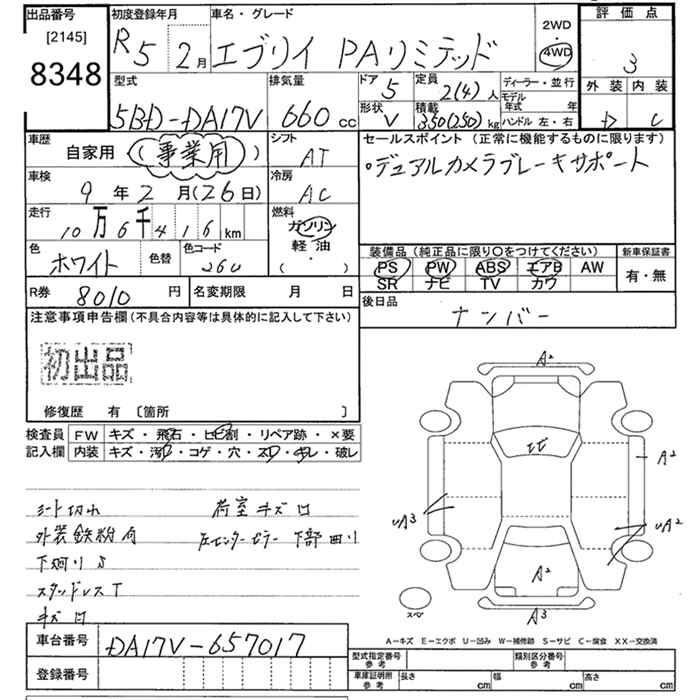 出品番号 初度登録年月 車名・グレード 2WD・4WD 評価点
[2145] 8348 R5 2月 エブリイ PAリミテッド 3
型式 排気量 ドア 5 定員 2(4)人 ディーラー・並行 外装 内装
5BD-DA17V 660cc 形状 V 積載 350(250)kg モデル年式 年 D C
ハンドル 左・右
車歴 自家用(事業用) シフト AT セールスポイント(正常に機能するものに限ります)
車検 9年2月(26日) 冷房 AC ・デュアルカメラブレーキサポート
走行 10万6千416km 燃料 ガソリン
軽油
( ・ )
色 ホワイト 色替 色コード 26U 装備品(純正品に限り○をつけてください) 新車保証書
PS PW ABS エアB AW 有・無
SR ナビ TV カワ
R券 8010円 名変期限 月 日 後日品
ナンバー
注意事項申告欄(不具合内容等は具体的に記入して下さい)
初出品
修復歴 有 [箇所 ]
検査員 FW キズ・飛石・ヒビ割・リペア跡・×要
記入欄 内装 キズ・汚・コゲ・穴・スレ・キレ・破レ
シート切れ 荷室キズ凹
外装鉄粉有 左センターピラー下部凹リ
下廻りS
スタッドレスT
キズ凹
A²
ヒビ
A²
UA³
UA²
A²
A³
スペ
A−キズ E−エクボ U−凹み W−補修跡 S−サビ C−腐食 XX−交換済
車台番号 DA17V-657017
登録番号
型式指定番号 参考 類別区分番号 参考
車庫証明用 参考 長さ cm 幅 cm 高さ cm